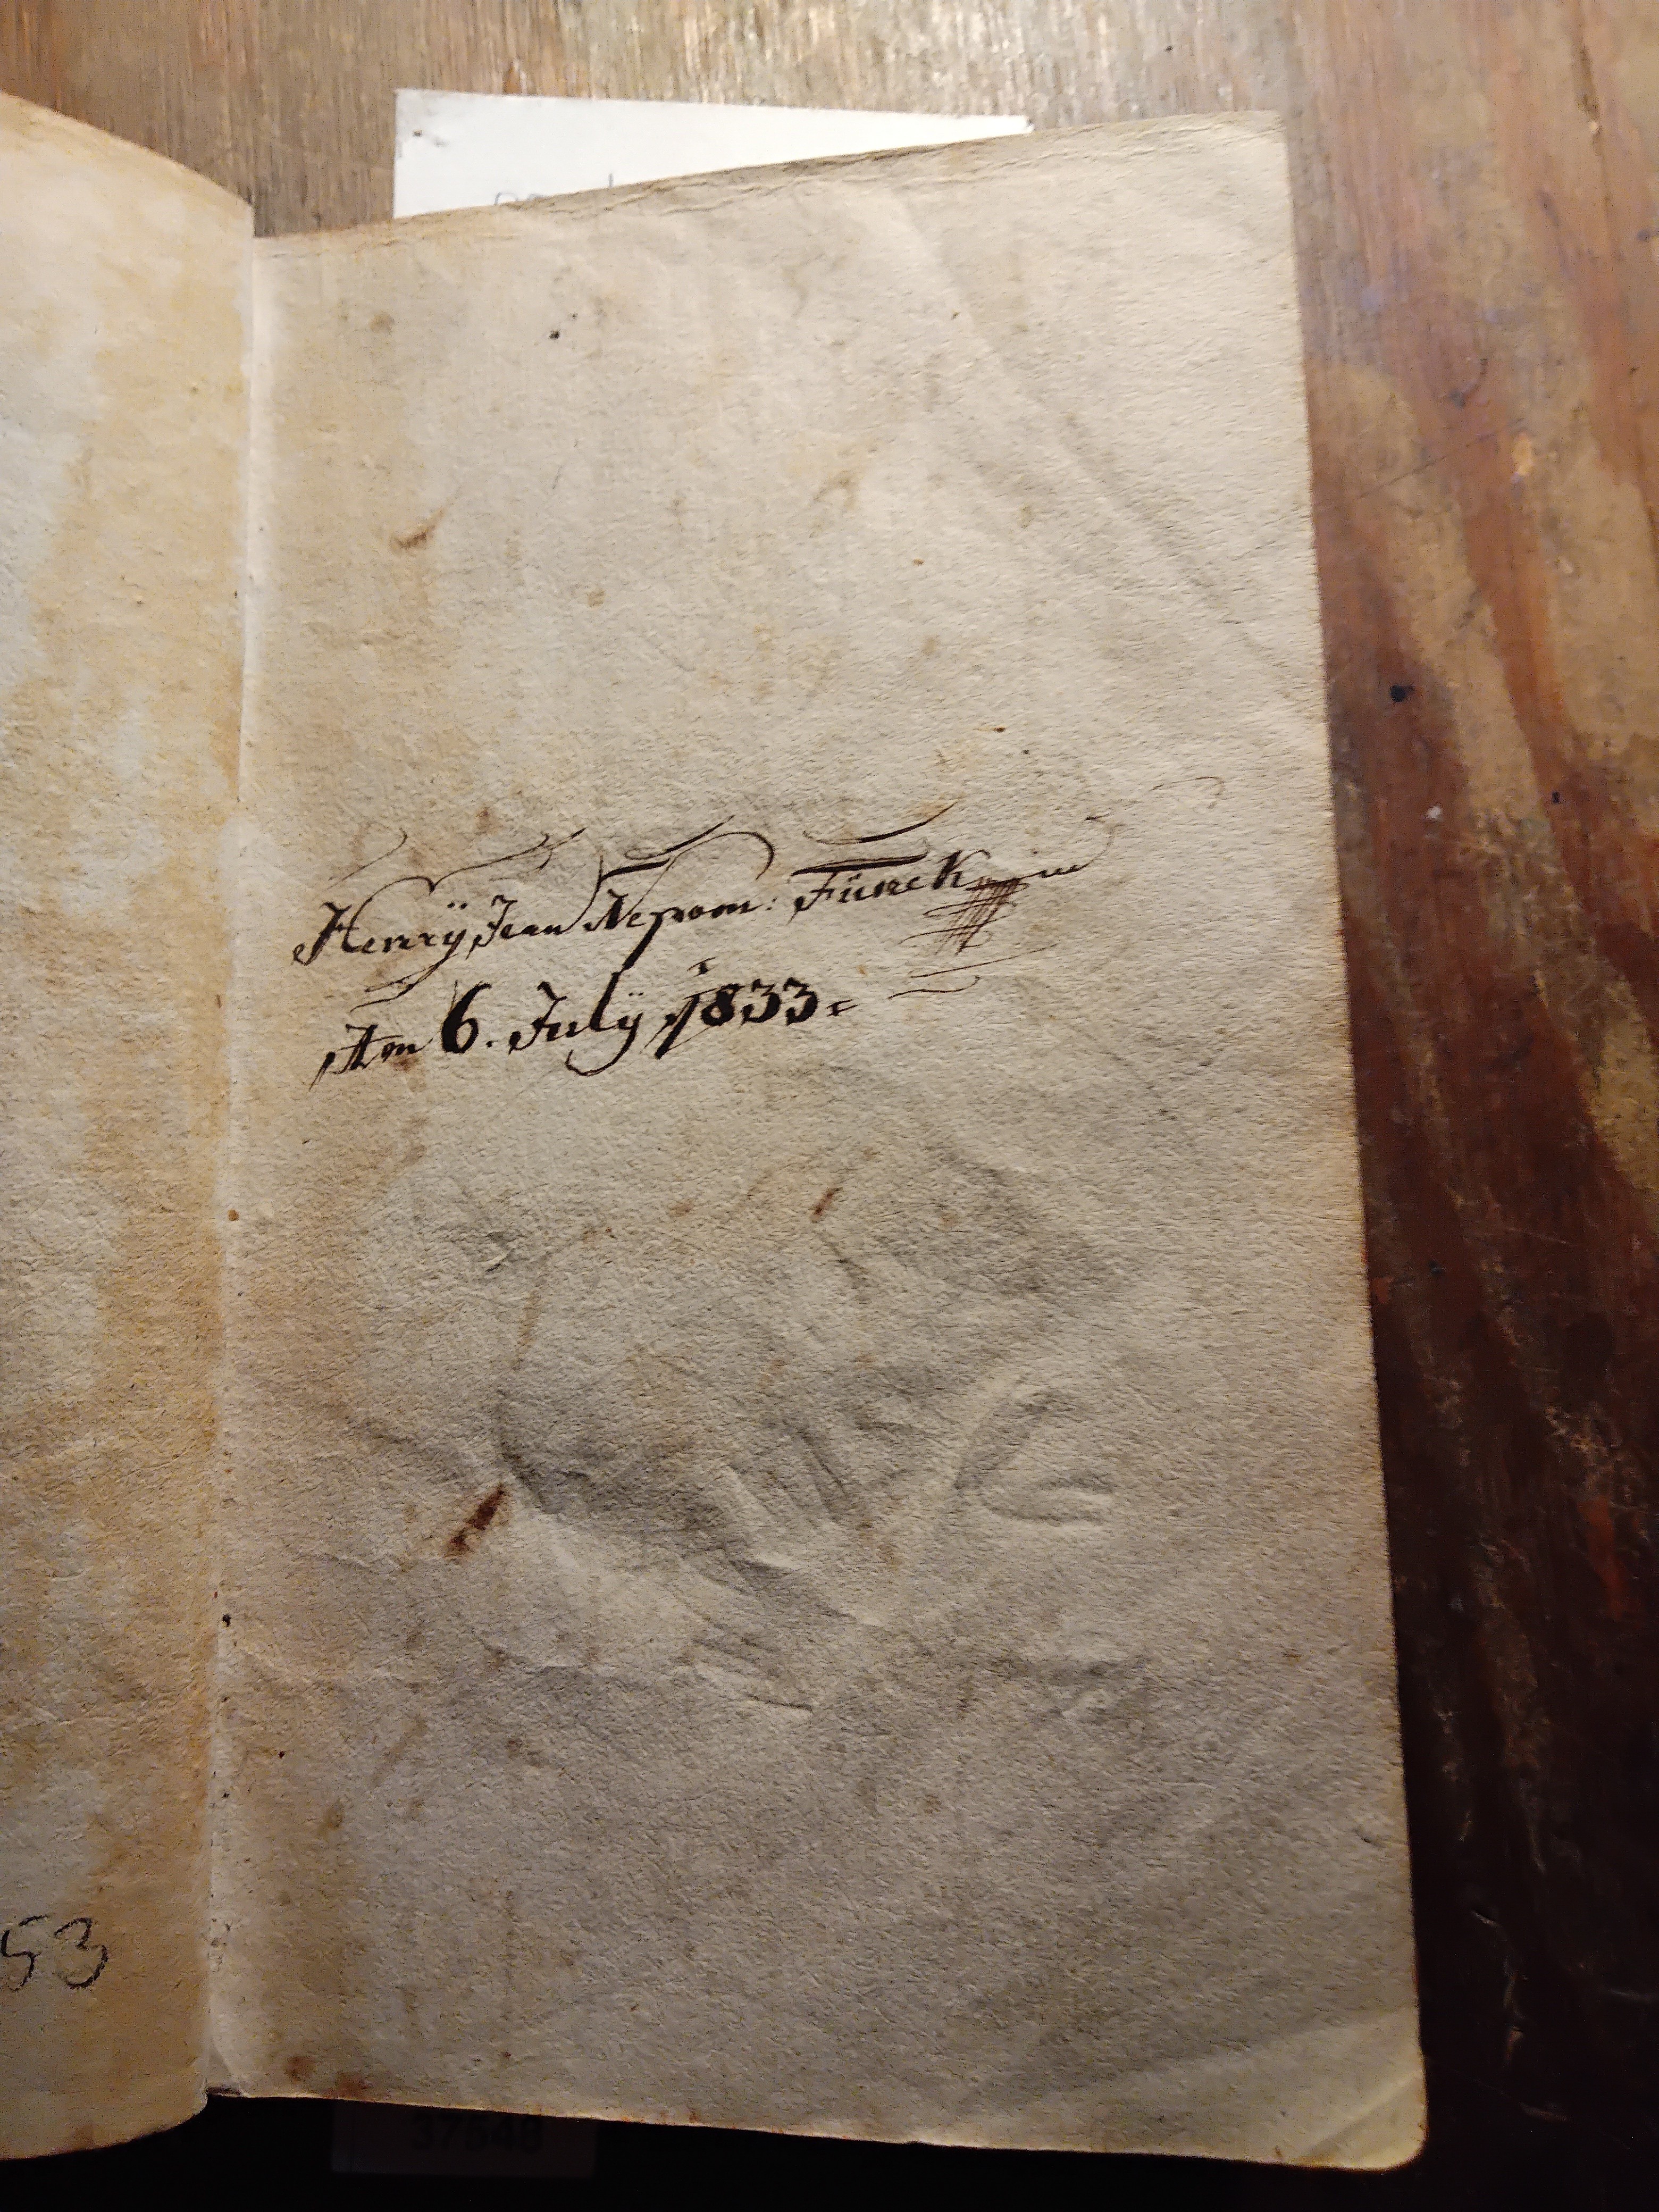 Henrÿ Jean Nepom: Fünck
Am 6. Julÿ 1833.
53
37640